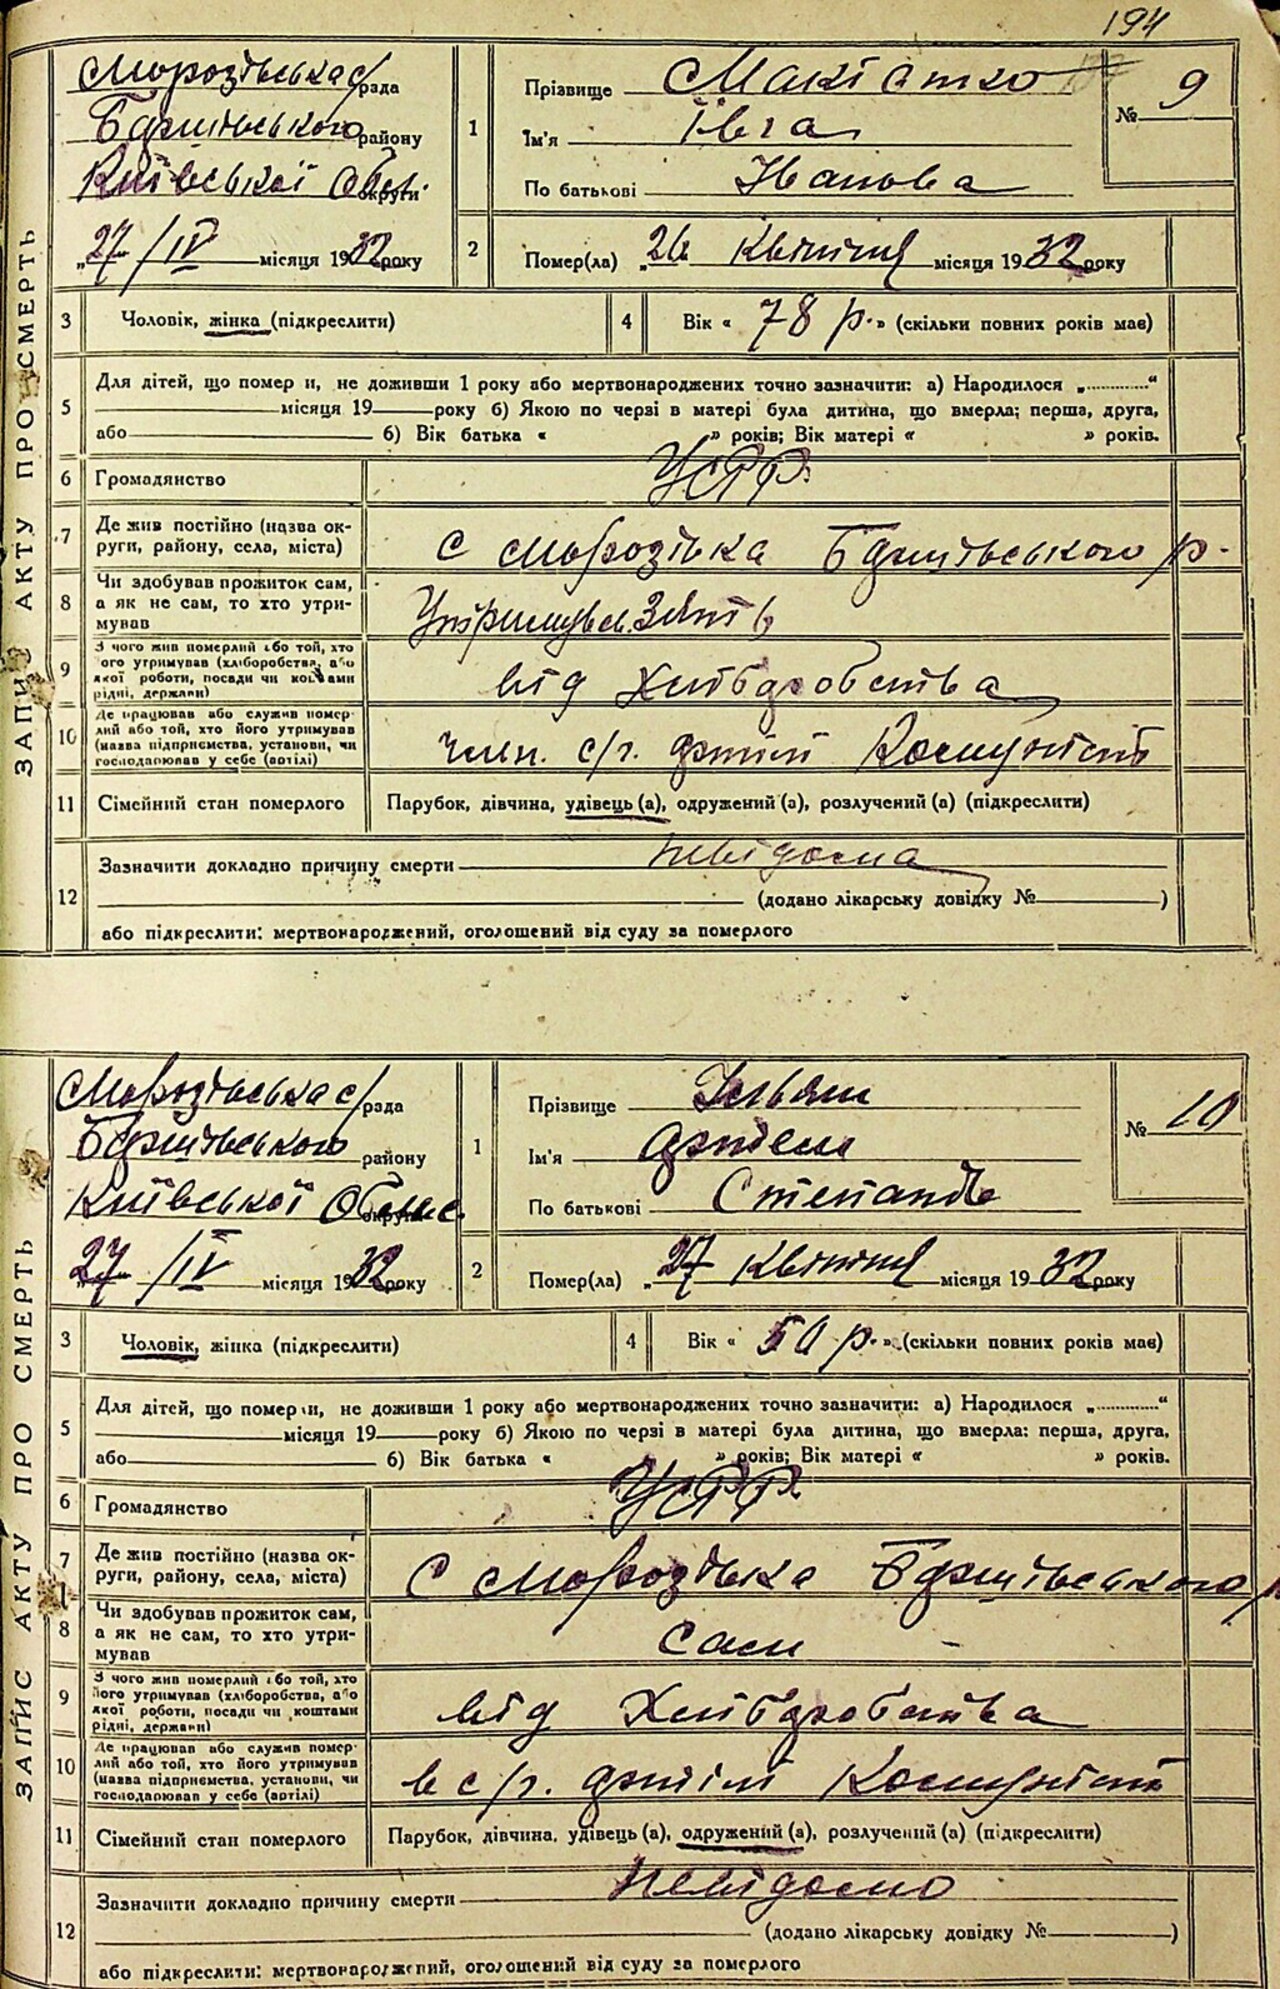 194
ЗАПИС АКТУ ПРО СМЕРТЬ
Морозівська с/рада
Баришівського району
Київської Обл. округи
„27 / IV місяця 1932 року
1
Прізвище Макіатко
Ім'я Івга
По батькові Іванова
№ 9
2
Помер(ла) „26 Квітня місяця 1932 року
3 Чоловік, жінка (підкреслити)
4 Вік « 78 р. » (скільки повних років має)
5 Для дітей, що помер и, не доживши 1 року або мертвонароджених точно зазначити: а) Народилося „............“
місяця 19 року б) Якою по черзі в матері була дитина, що вмерла; перша, друга,
або б) Вік батька « » років; Вік матері « » років.
6 Громадянство УСРР.
7 Де жив постійно (назва ок-
руги, району, села, міста)
с Морозівка Баришівського р.
8 Чи здобував прожиток сам,
а як не сам, то хто утри-
мував
Утримував. Зять
9 З чого жив померлий або той, хто
його утримував (хліборобства, або
якої роботи, посади чи коштами
рідні, держави)
від Хліборобства
10 Де працював або служив помер-
лий або той, хто його утримував
(назва підприємства, установи, чи
господарював у себе (артілі)
член. с/г. артілі Комуніст
11 Сімейний стан померлого Парубок, дівчина, удівець (а), одружений (а), розлучений (а) (підкреслити)
12 Зазначити докладно причину смерти невідома
(додано лікарську довідку № )
або підкреслити: мертвонароджений, оголошений від суду за померлого
ЗАПИС АКТУ ПРО СМЕРТЬ
Морозівська с/рада
Баришівського району
Київської Облас. округи
„27 / IV місяця 1932 року
1
Прізвище Ульян
Ім'я Артем
По батькові Степанів
№ 10
2
Помер(ла) „27 Квітня місяця 1932 року
3 Чоловік, жінка (підкреслити)
4 Вік « 50 р. » (скільки повних років має)
5 Для дітей, що помер и, не доживши 1 року або мертвонароджених точно зазначити: а) Народилося „............“
місяця 19 року б) Якою по черзі в матері була дитина, що вмерла: перша, друга,
або б) Вік батька « » років; Вік матері « » років.
6 Громадянство УСРР.
7 Де жив постійно (назва ок-
руги, району, села, міста)
С Морозівка Баришівського р
8 Чи здобував прожиток сам,
а як не сам, то хто утри-
мував
Сам -
9 З чого жив померлий або той, хто
його утримував (хліборобства, або
якої роботи, посади чи коштами
рідні, держави)
від Хліборобства
10 Де працював або служив помер-
лий або той, хто його утримував
(назва підприємства, установи, чи
господарював у себе (артілі)
в с/г. артілі Комуніст
11 Сімейний стан померлого Парубок, дівчина, удівець (а), одружений (а), розлучений (а) (підкреслити)
12 Зазначити докладно причину смерти Невідомо
(додано лікарську довідку № )
або підкреслити: мертвонароджений, оголошений від суду за померлого